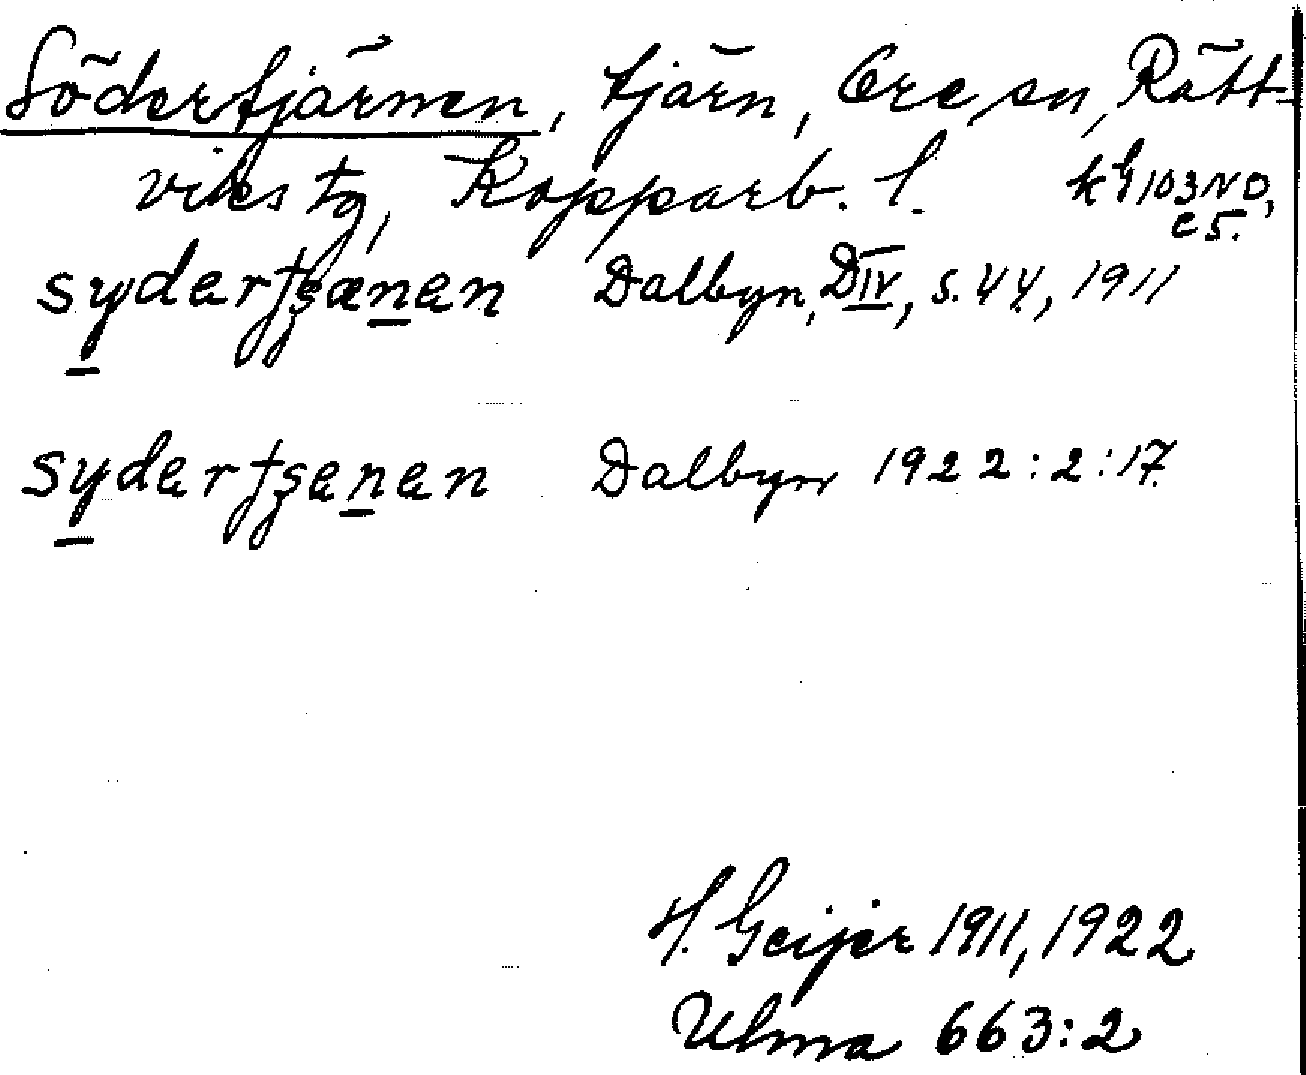 Södertjärnen, tjärn, Ore sn, Rätt-
viks tg, Kopparb. l. kG 103 NO,
c 5.
sydertʂænen Dalbyn, D IV, s. 44, 1911
sydertʂenen Dalbyn 1922:2:17.
H. Geijer 1911, 1922
Ulma 663:2